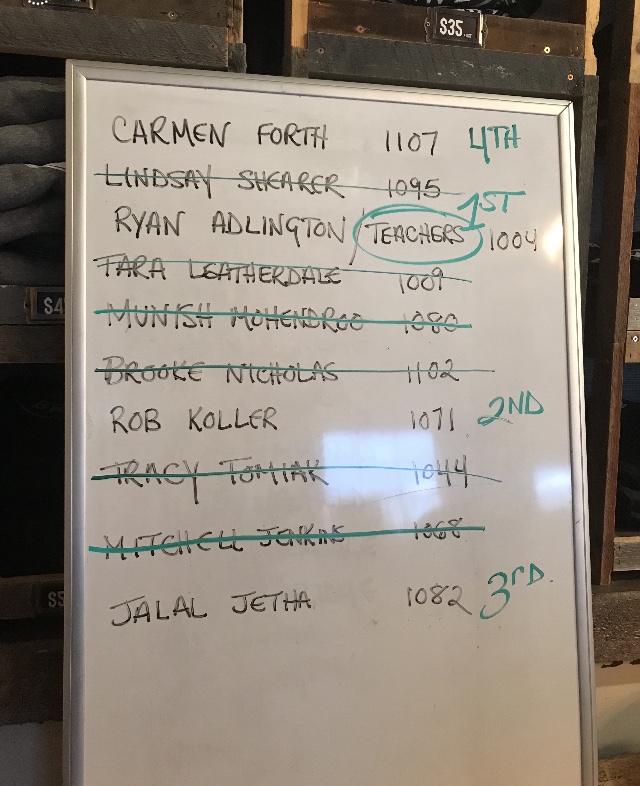 $35
CARMEN FORTH 1107 4TH
LINDSAY SHEARER 1095
1ST
RYAN ADLINGTON / TEACHERS 1004
TARA LEATHERDALE 1009
MUNISH MOHENDROO 1080
BROOKE NICHOLAS 1102
ROB KOLLER 1071 2ND
TRACY TOMIAK 1044
MITCHELL JENKINS 1068
JALAL JETHA 1082 3rD.